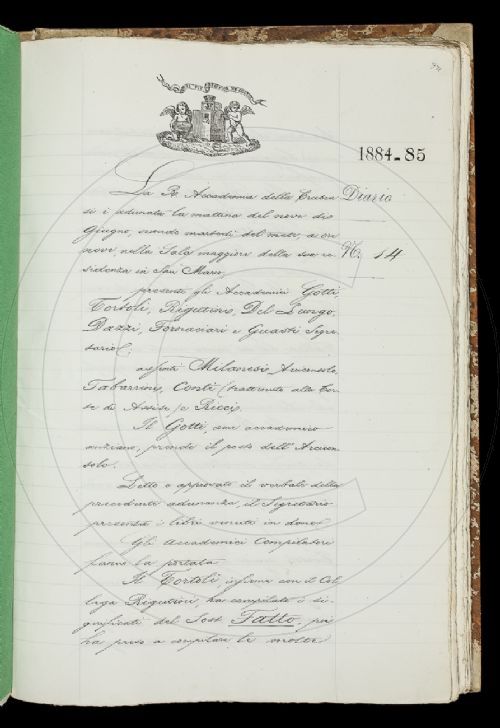 1884-85
Diario
N. 14
La R. Accademia della Crusca
si è adunata la mattina del nove di
Giugno, secondo martedì del mese, a ore
nove, nella Sala maggiore della sua re-
sidenza in San Marco,
presenti gli Accademici Gotti,
Tortoli, Rigutini, Del Lungo,
Dazzi, Fornaciari e Guasti Segre-
tario;
assenti Milanesi Arciconsolo,
Tabarrini, Conti (trattenuto alla Cor-
te di Assise) e Ricci.
Il Gotti, come accademico
anziano, prende il posto dell'Arcicon-
solo.
Letto e approvato il verbale della
precedente adunanza, il Segretario
presenta i libri venuti in dono.
Gli Accademici Compilatori
fanno la portata
Il Tortoli, insieme con il Col-
lega Rigutini, ha compilato i si-
gnificati del Sost. Fatto, poi
ha preso a compilare le molte